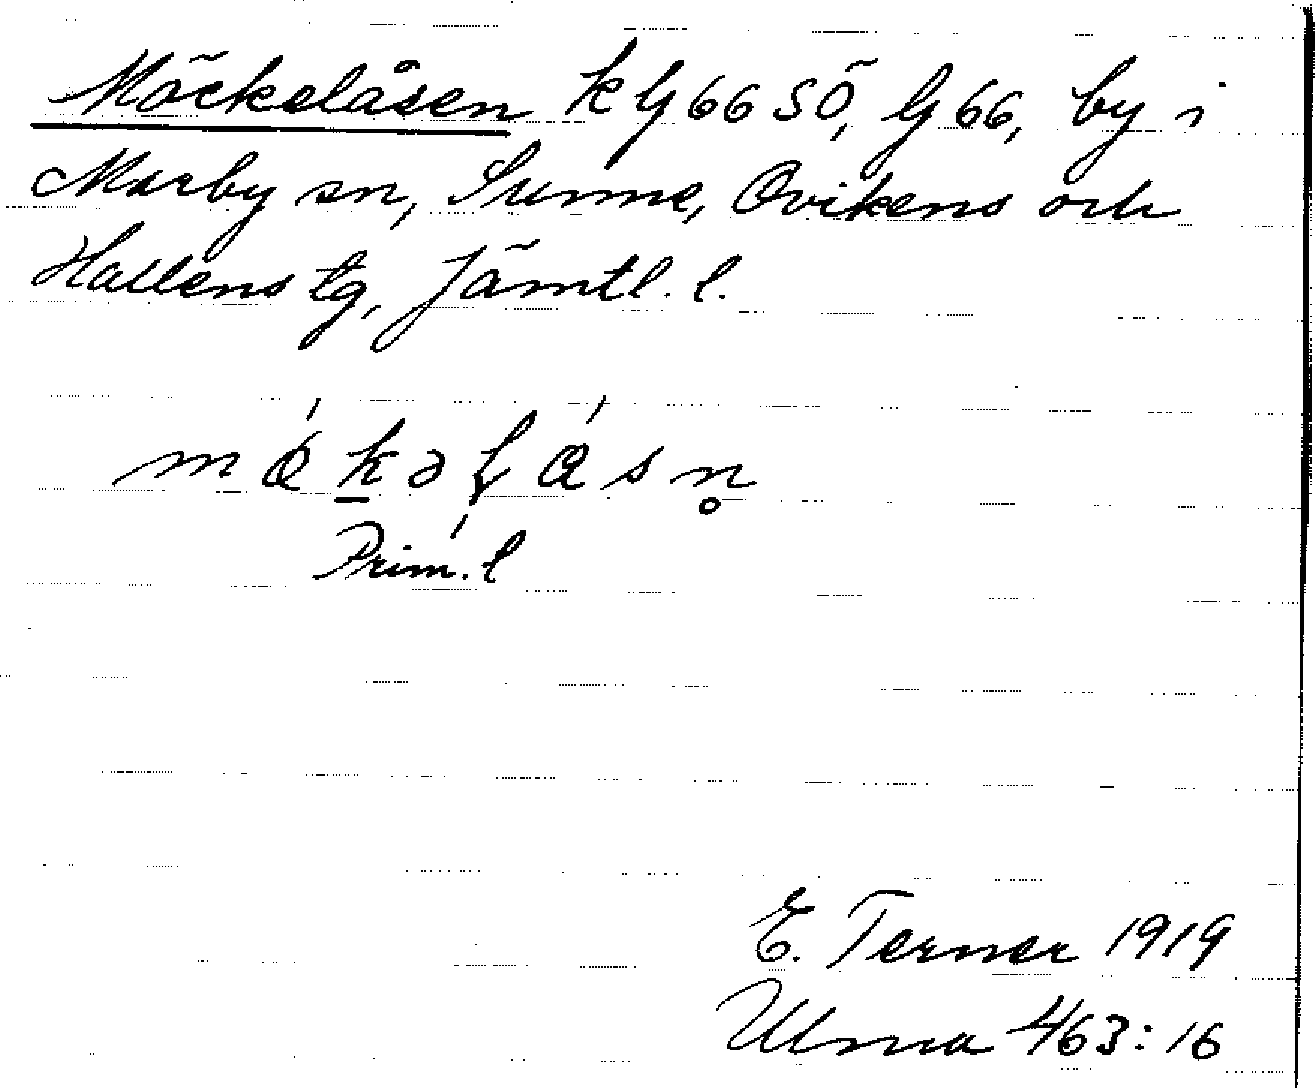 Möckelåsen k G 66 SÖ, G 66, by i
Marby sn, Sunne, Ovikens och
Hallens tg, Jämtl. l.
Prim. l
E. Terner 1919
Ulma 463:16